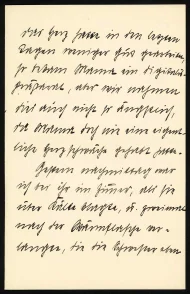 das Herz hatte in den letzten
Tagen weniger gut gearbeitet,
so bekam Mama ein Digitalis-
präparat, aber wir nahmen
das auch nicht so ängstlich,
da Mama doch nie eine eigent-
liche Herzschwäche gehabt hatte.
Gestern nachmittag war
ich bei ihr im Zimmer, als sie
über Kälte klagte, u. zweimal
nach der Wärmflasche ver-
langte, die die Schwester eben